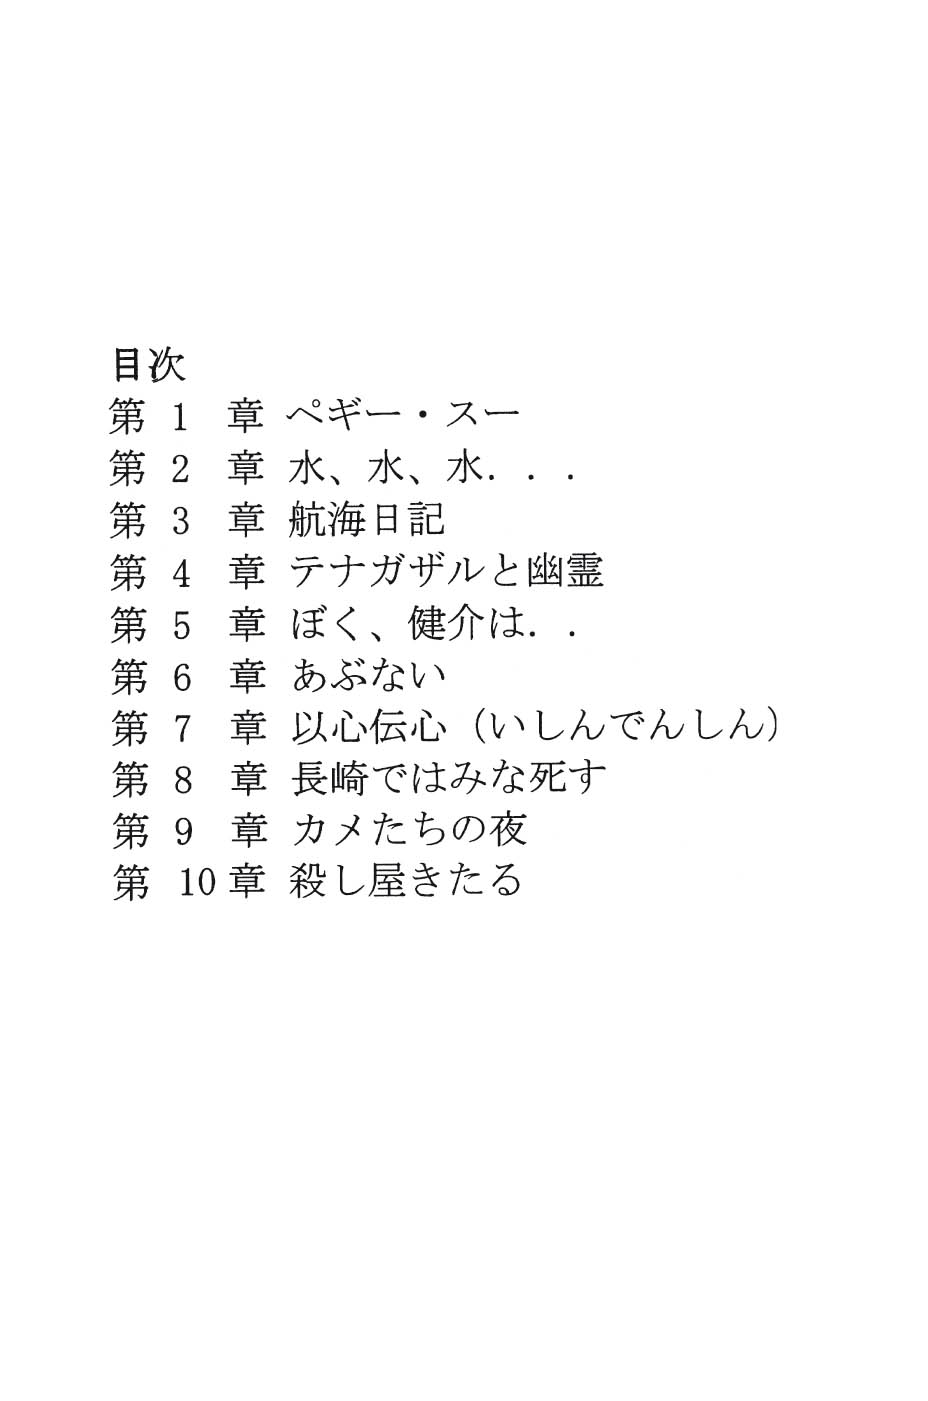 目次
第 1 章 ペギー・スー
第 2 章 水、水、水. . .
第 3 章 航海日記
第 4 章 テナガザルと幽霊
第 5 章 ぼく、健介は. .
第 6 章 あぶない
第 7 章 以心伝心（いしんでんしん）
第 8 章 長崎ではみな死す
第 9 章 カメたちの夜
第 10 章 殺し屋きたる